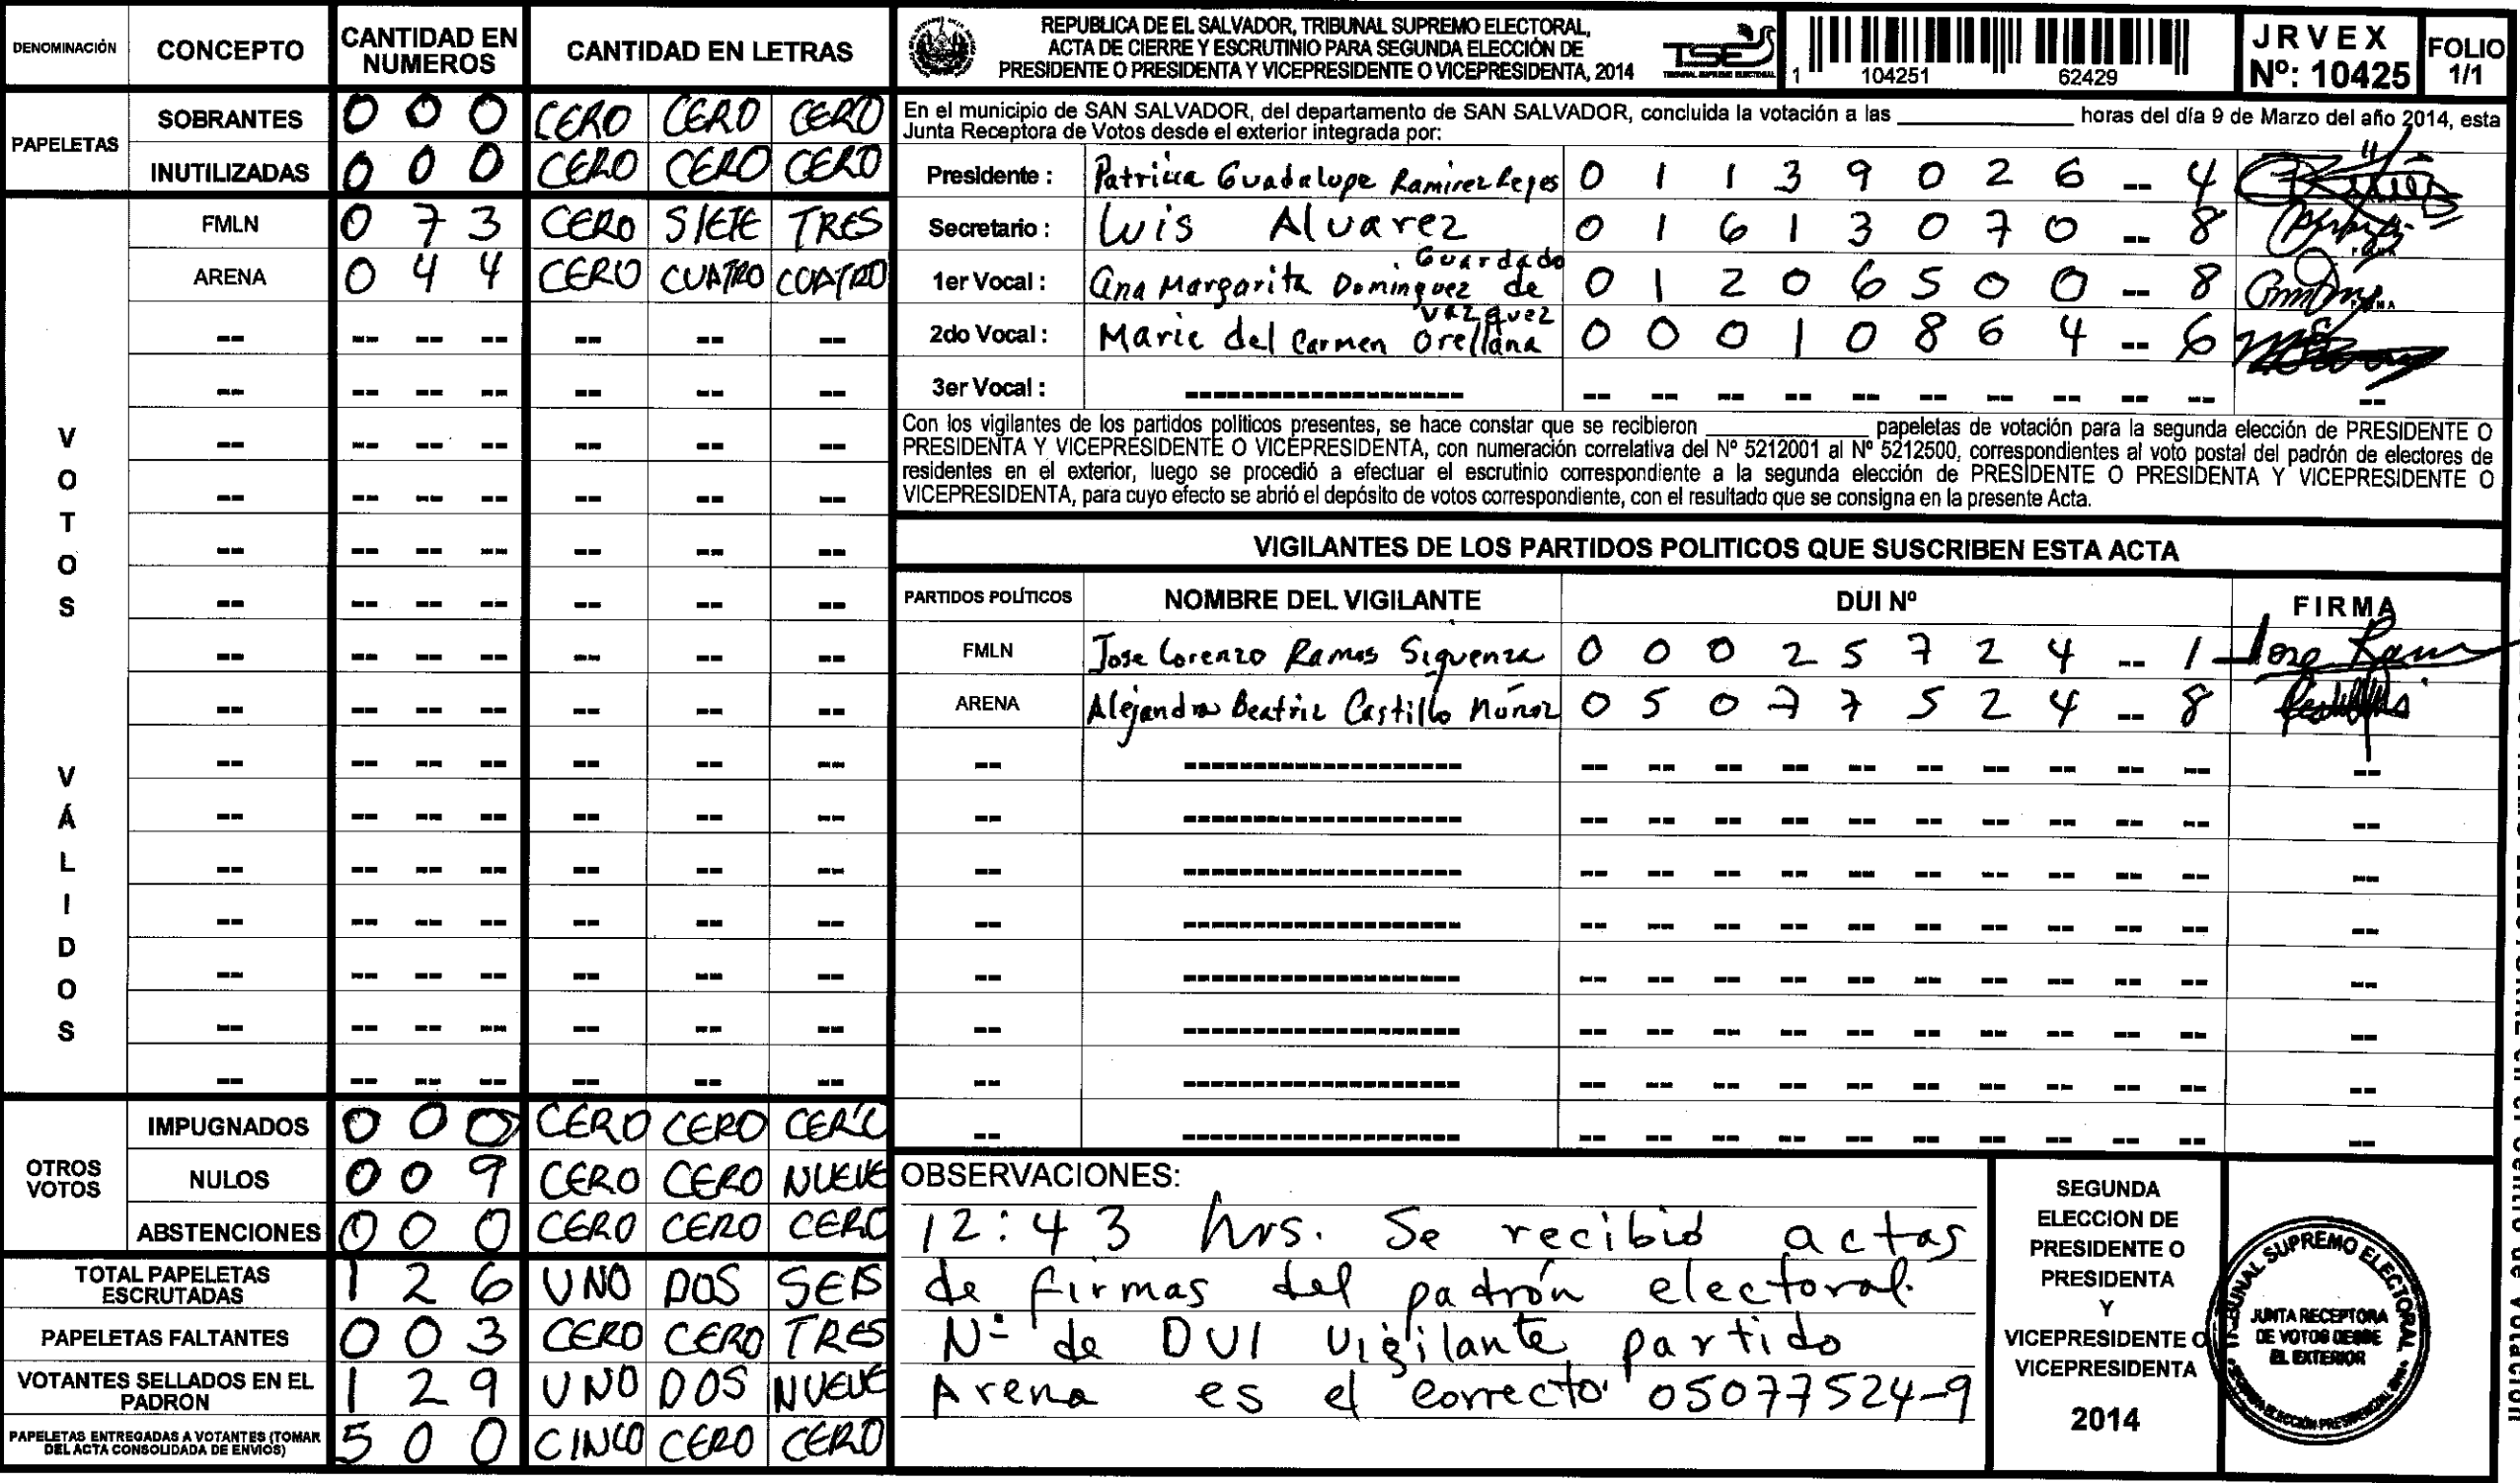 DENOMINACIÓN CONCEPTO CANTIDAD EN NUMEROS CANTIDAD EN LETRAS
PAPELETAS
SOBRANTES 0 0 0 CERO CERO CERO
INUTILIZADAS 0 0 0 CERO CERO CERO
VOTOS VÁLIDOS
FMLN 0 7 3 CERO SIETE TRES
ARENA 0 4 4 CERO CUATRO CUATRO
OTROS VOTOS
IMPUGNADOS 0 0 0 CERO CERO CERO
NULOS 0 0 9 CERO CERO NUEVE
ABSTENCIONES 0 0 0 CERO CERO CERO
TOTAL PAPELETAS ESCRUTADAS 1 2 6 UNO DOS SEIS
PAPELETAS FALTANTES 0 0 3 CERO CERO TRES
VOTANTES SELLADOS EN EL PADRON 1 2 9 UNO DOS NUEVE
PAPELETAS ENTREGADAS A VOTANTES (TOMAR DEL ACTA CONSOLIDADA DE ENVIOS) 5 0 0 CINCO CERO CERO
REPUBLICA DE EL SALVADOR, TRIBUNAL SUPREMO ELECTORAL,
ACTA DE CIERRE Y ESCRUTINIO PARA SEGUNDA ELECCIÓN DE
PRESIDENTE O PRESIDENTA Y VICEPRESIDENTE O VICEPRESIDENTA, 2014
TSE
TRIBUNAL SUPREMO ELECTORAL
1 104251 62429
JRVEX
Nº: 10425
FOLIO
1/1
En el municipio de SAN SALVADOR, del departamento de SAN SALVADOR, concluida la votación a las ____________ horas del día 9 de Marzo del año 2014, esta
Junta Receptora de Votos desde el exterior integrada por:
Presidente : Patricia Guadalupe Ramirez Reyes 0 1 1 3 9 0 2 6 -- 4
Secretario : Luis Alvarez 0 1 6 1 3 0 7 0 -- 8
1er Vocal : Ana Margarita Dominguez Guardado de Vazquez 0 1 2 0 6 5 0 0 -- 8
2do Vocal : Marie del Carmen Orellana 0 0 0 1 0 8 6 4 -- 6
3er Vocal : --------------------
Con los vigilantes de los partidos políticos presentes, se hace constar que se recibieron ____________ papeletas de votación para la segunda elección de PRESIDENTE O
PRESIDENTA Y VICEPRESIDENTE O VICEPRESIDENTA, con numeración correlativa del Nº 5212001 al Nº 5212500, correspondientes al voto postal del padrón de electores de
residentes en el exterior, luego se procedió a efectuar el escrutinio correspondiente a la segunda elección de PRESIDENTE O PRESIDENTA Y VICEPRESIDENTE O
VICEPRESIDENTA, para cuyo efecto se abrió el depósito de votos correspondiente, con el resultado que se consigna en la presente Acta.
VIGILANTES DE LOS PARTIDOS POLITICOS QUE SUSCRIBEN ESTA ACTA
PARTIDOS POLÍTICOS NOMBRE DEL VIGILANTE DUI Nº FIRMA
FMLN Jose Lorenzo Ramos Siguenza 0 0 0 2 5 7 2 4 -- 1 Jose Ram
ARENA Alejandra Beatriz Castillo Núñez 0 5 0 7 7 5 2 4 -- 8
OBSERVACIONES:
12:43 hrs. Se recibió actas
de firmas del padrón electoral.
Nº de DUI vigilante partido
Arena es el correcto 05077524-9
SEGUNDA
ELECCION DE
PRESIDENTE O
PRESIDENTA
Y
VICEPRESIDENTE O
VICEPRESIDENTA
2014
TRIBUNAL SUPREMO ELECTORAL
JUNTA RECEPTORA
DE VOTOS DESDE
EL EXTERIOR